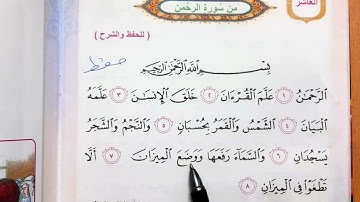 العاشر
من سورة الرحمن
( للحفظ والشرح )
حفظ
بِسْمِ اللَّهِ الرَّحْمَنِ الرَّحِيمِ
الرَّحْمَنُ ١ عَلَّمَ الْقُرْءَانَ ٢ خَلَقَ الْإِنسَانَ ٣ عَلَّمَهُ
الْبَيَانَ ٤ الشَّمْسُ وَالْقَمَرُ بِحُسْبَانٍ ٥ وَالنَّجْمُ وَالشَّجَرُ
يَسْجُدَانِ ٦ وَالسَّمَاءَ رَفَعَهَا وَوَضَعَ الْمِيزَانَ ٧ أَلَّا
تَطْغَوْا فِي الْمِيزَانِ ٨